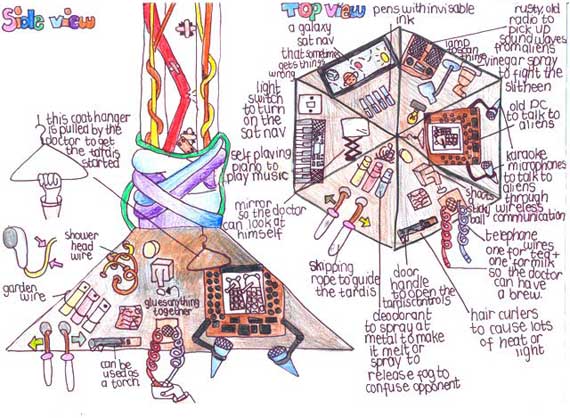 Side view
TOP view
this coathanger
is pulled by the
doctor to get
the tardis
started
shower
head
wire
garden
wire
glues anything
together
can be
used as
a torch
a galaxy
sat nav
that sometimes
gets things
wrong
light
switch
to turn
on the
sat nav
self playing
piano to
play music
mirror
so the doctor
can look at
himself
skipping
rope to guide
the tardis
pens with invisable
ink
lamp
to scan
things
rusty, old
radio to
pick up
sound waves
from aliens
vinegar spray
to fight the
slitheen
old PC
to talk to
aliens
karaoke
microphones
to talk to
aliens
through
wireless
communication
shoots
a sticky
ball
telephone
wires
one for tea +
one for milk
so the doctor
can have
a brew.
door
handle
to open the
tardis controls
deodorant
to spray at
metal to make
it melt or
spray to
release fog to
confuse opponent
hair curlers
to cause lots
of heat or
light